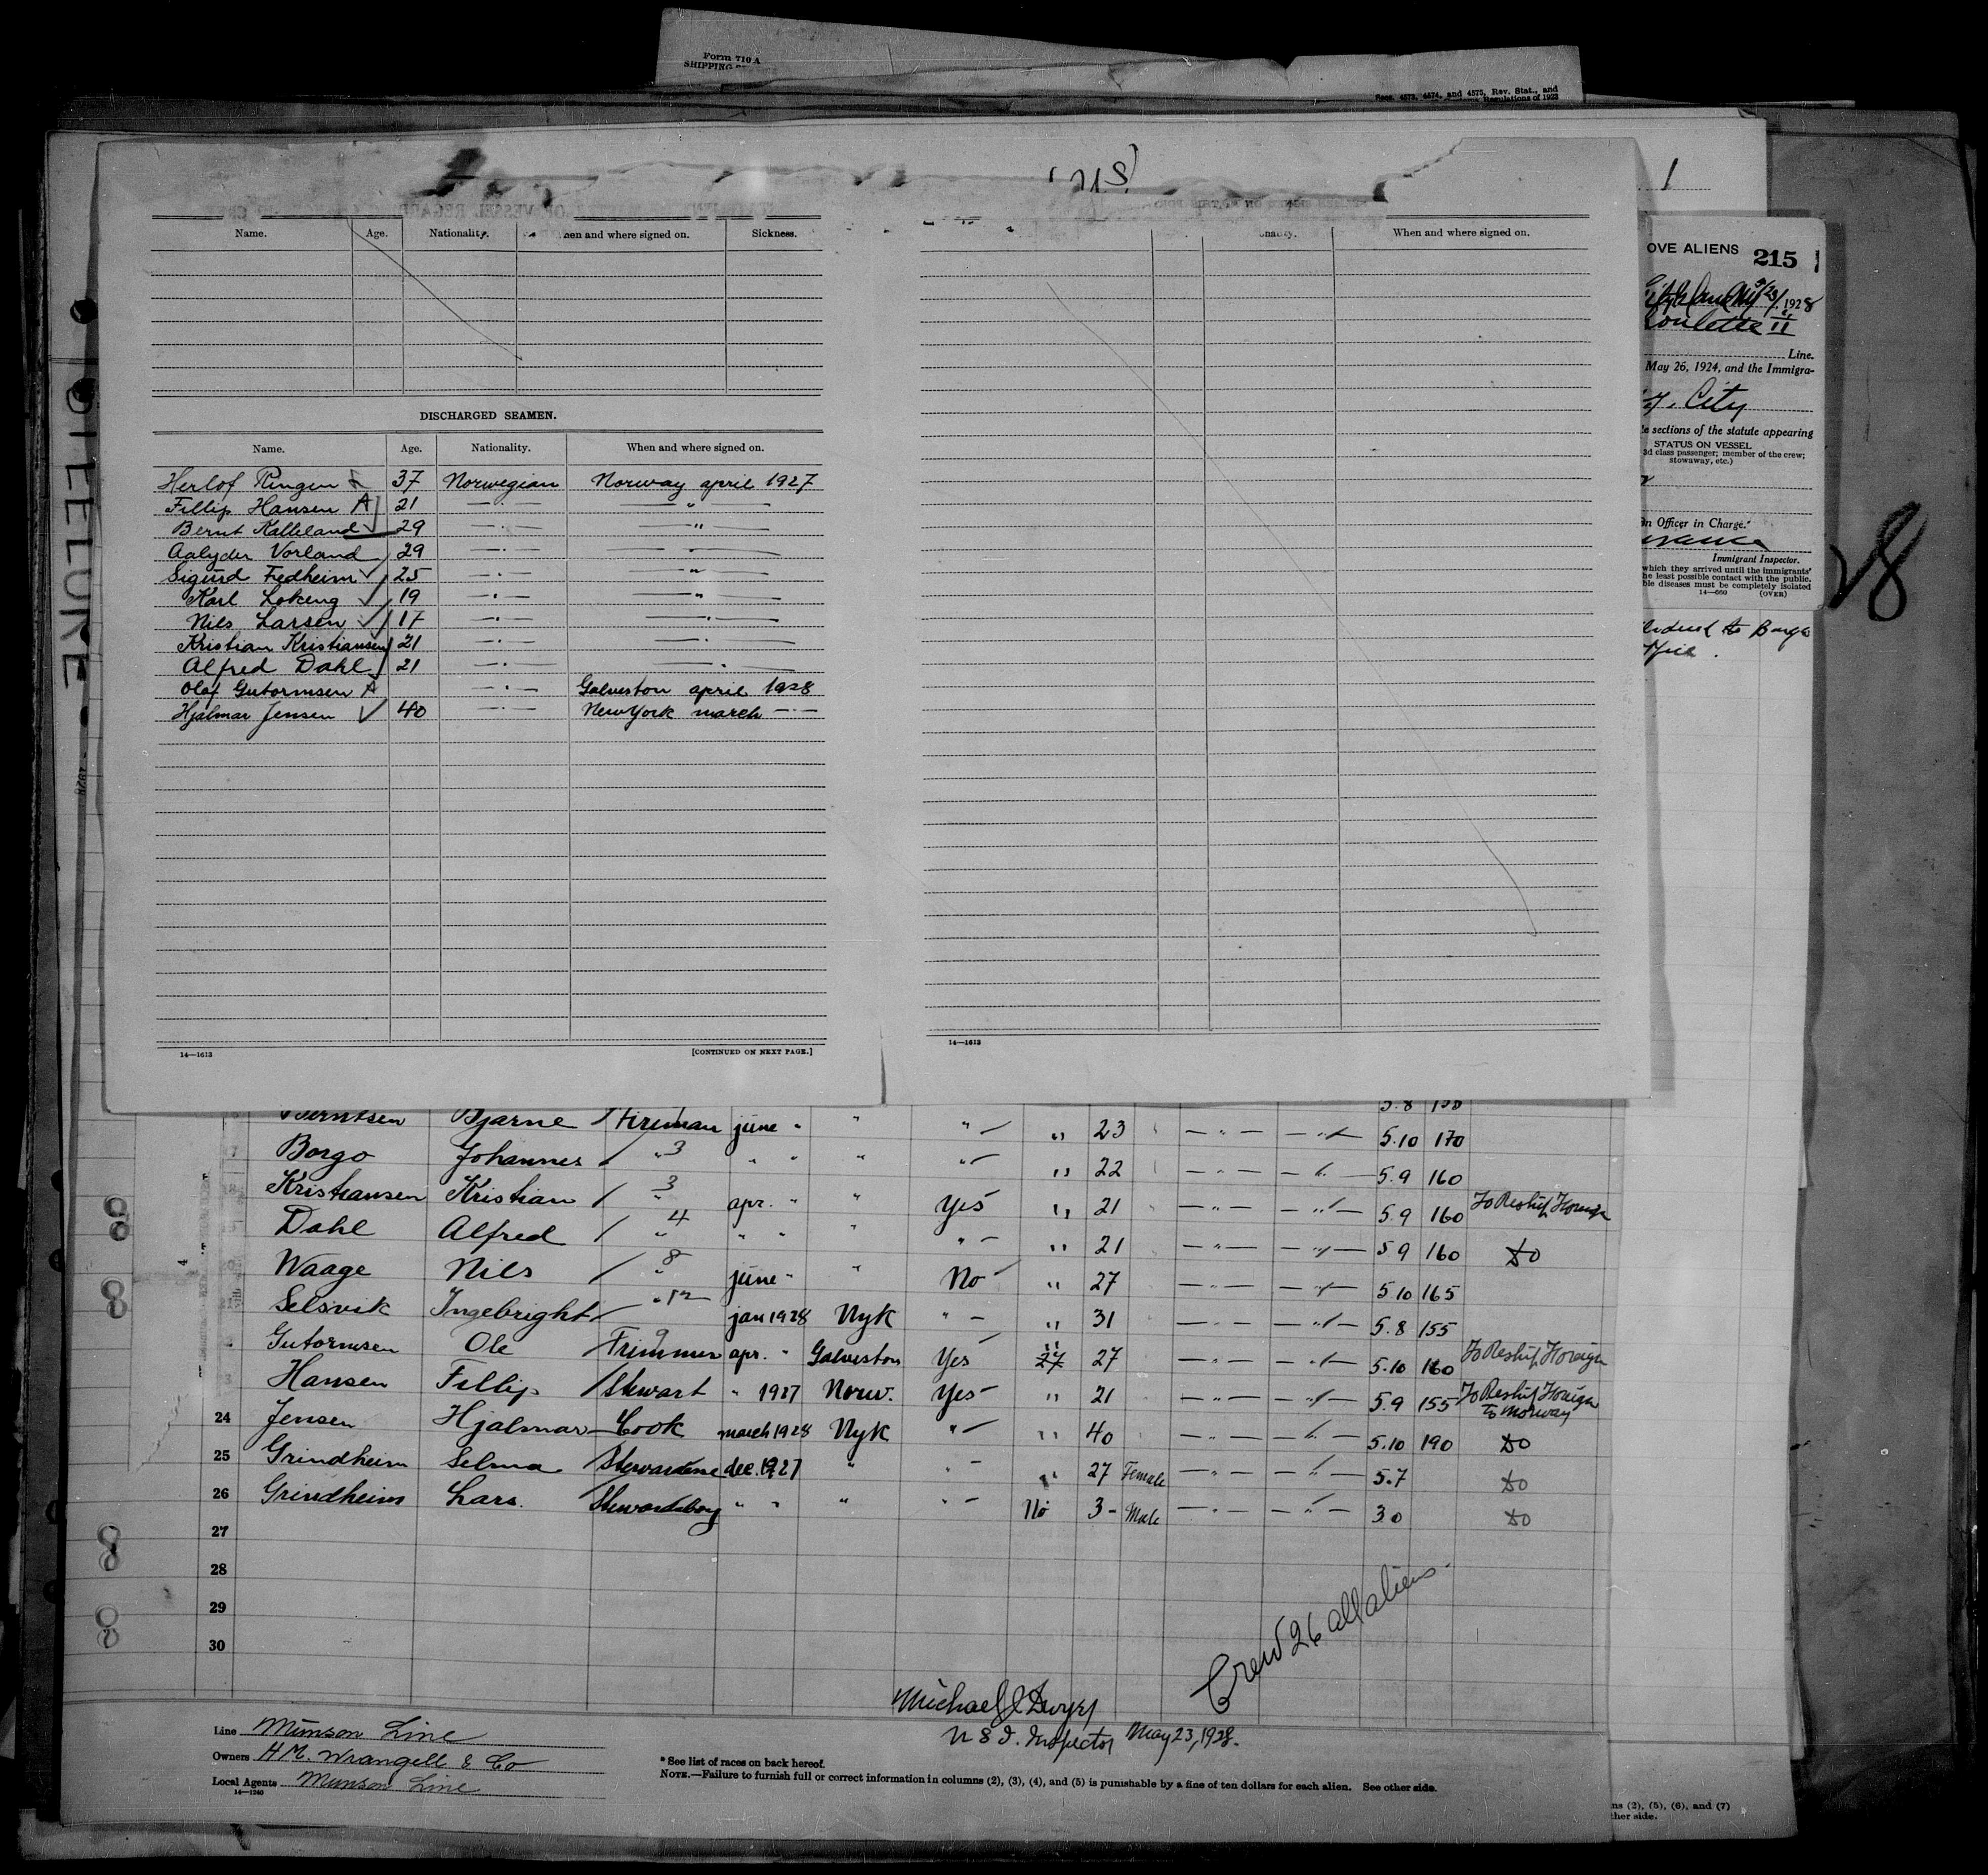 Form 710 A
SHIPPING
Secs. 4573, 4574, and 4575, Rev. Stat., and
Regulations of 1923
1
Name. Age. Nationality. When and where signed on. Sickness.
When and where signed on.
DISCHARGED SEAMEN.
Name. Age. Nationality. When and where signed on.
Herlof Ringen 37 Norwegian Norway april 1927
Fillip Hansen A 21 —·— —"—
Bernt Kalleland 29 —·— —"—
Vorland 29 —·— —·—
Sigurd Fedheim 25 —·— —"—
Karl Lokeng 19 —·— —"—
Nils Larsen 17 —·— —·—
Kristian Kristiansen 21 —·— —·—
Alfred Dahl 21 —·— —·—
Olaf Gutormsen A —·— Galveston april 1928
Hjalmar Jensen 40 —·— New York march —·—
14—1613 [CONTINUED ON NEXT PAGE.]
14—1613
OVE ALIENS 215
1928
II
Line.
May 26, 1924, and the Immigra-
City
e sections of the statute appearing
STATUS ON VESSEL
3d class passenger; member of the crew;
stowaway, etc.)
Officer in Charge.
Immigrant Inspector.
which they arrived until the immigrants'
he least possible contact with the public.
ble diseases must be completely isolated
14—660 (OVER)
28
Berntsen Bjarne Fireman june " " " " 23 —"— —"— 5.10 170
Borgo Johannes " 3 " " " " " 22 —"— —"— 5.9 160
Kristiansen Kristian " 3 apr. " " Yes " 21 —"— —"— 5.9 160 To Reship Foreign
Dahl Alfred " 4 " " " " " 21 —"— —"— 5.9 160 Do
Waage Nils " 8 june " " No " 27 —"— —"— 5.10 165
Selsvik Ingebright " 12 jan 1928 Nyk " " 31 —"— —"— 5.8 155
Gutormsen Ole Trimmer 9 apr. " Galveston Yes 27 27 —"— —"— 5.10 160 To Reship Foreign
Hansen Fillip Stewart " 1927 Norw. Yes " 21 —"— —"— 5.9 155 To Reship Foreign
to Norway
24 Jensen Hjalmar Cook march 1928 Nyk " " 40 —"— —"— 5.10 190 Do
25 Grindheim Selma Stewardess dec. 1927 " " " 27 Female —"— —"— 5.7 Do
26 Grindheim Lars. Stewardsboy " " " " No 3 - Male —"— —"— 3.0 Do
27
28
29
30
Crew 26 all aliens
Michael J. Dwyer
U S I. Inspector May 23, 1928.
Line Munson Line
Owners H.M. Wrangell & Co
Local Agents Munson Line
14—1240
* See list of races on back hereof.
NOTE.—Failure to furnish full or correct information in columns (2), (3), (4), and (5) is punishable by a fine of ten dollars for each alien. See other side.
ns (2), (5), (6), and (7)
ther side.